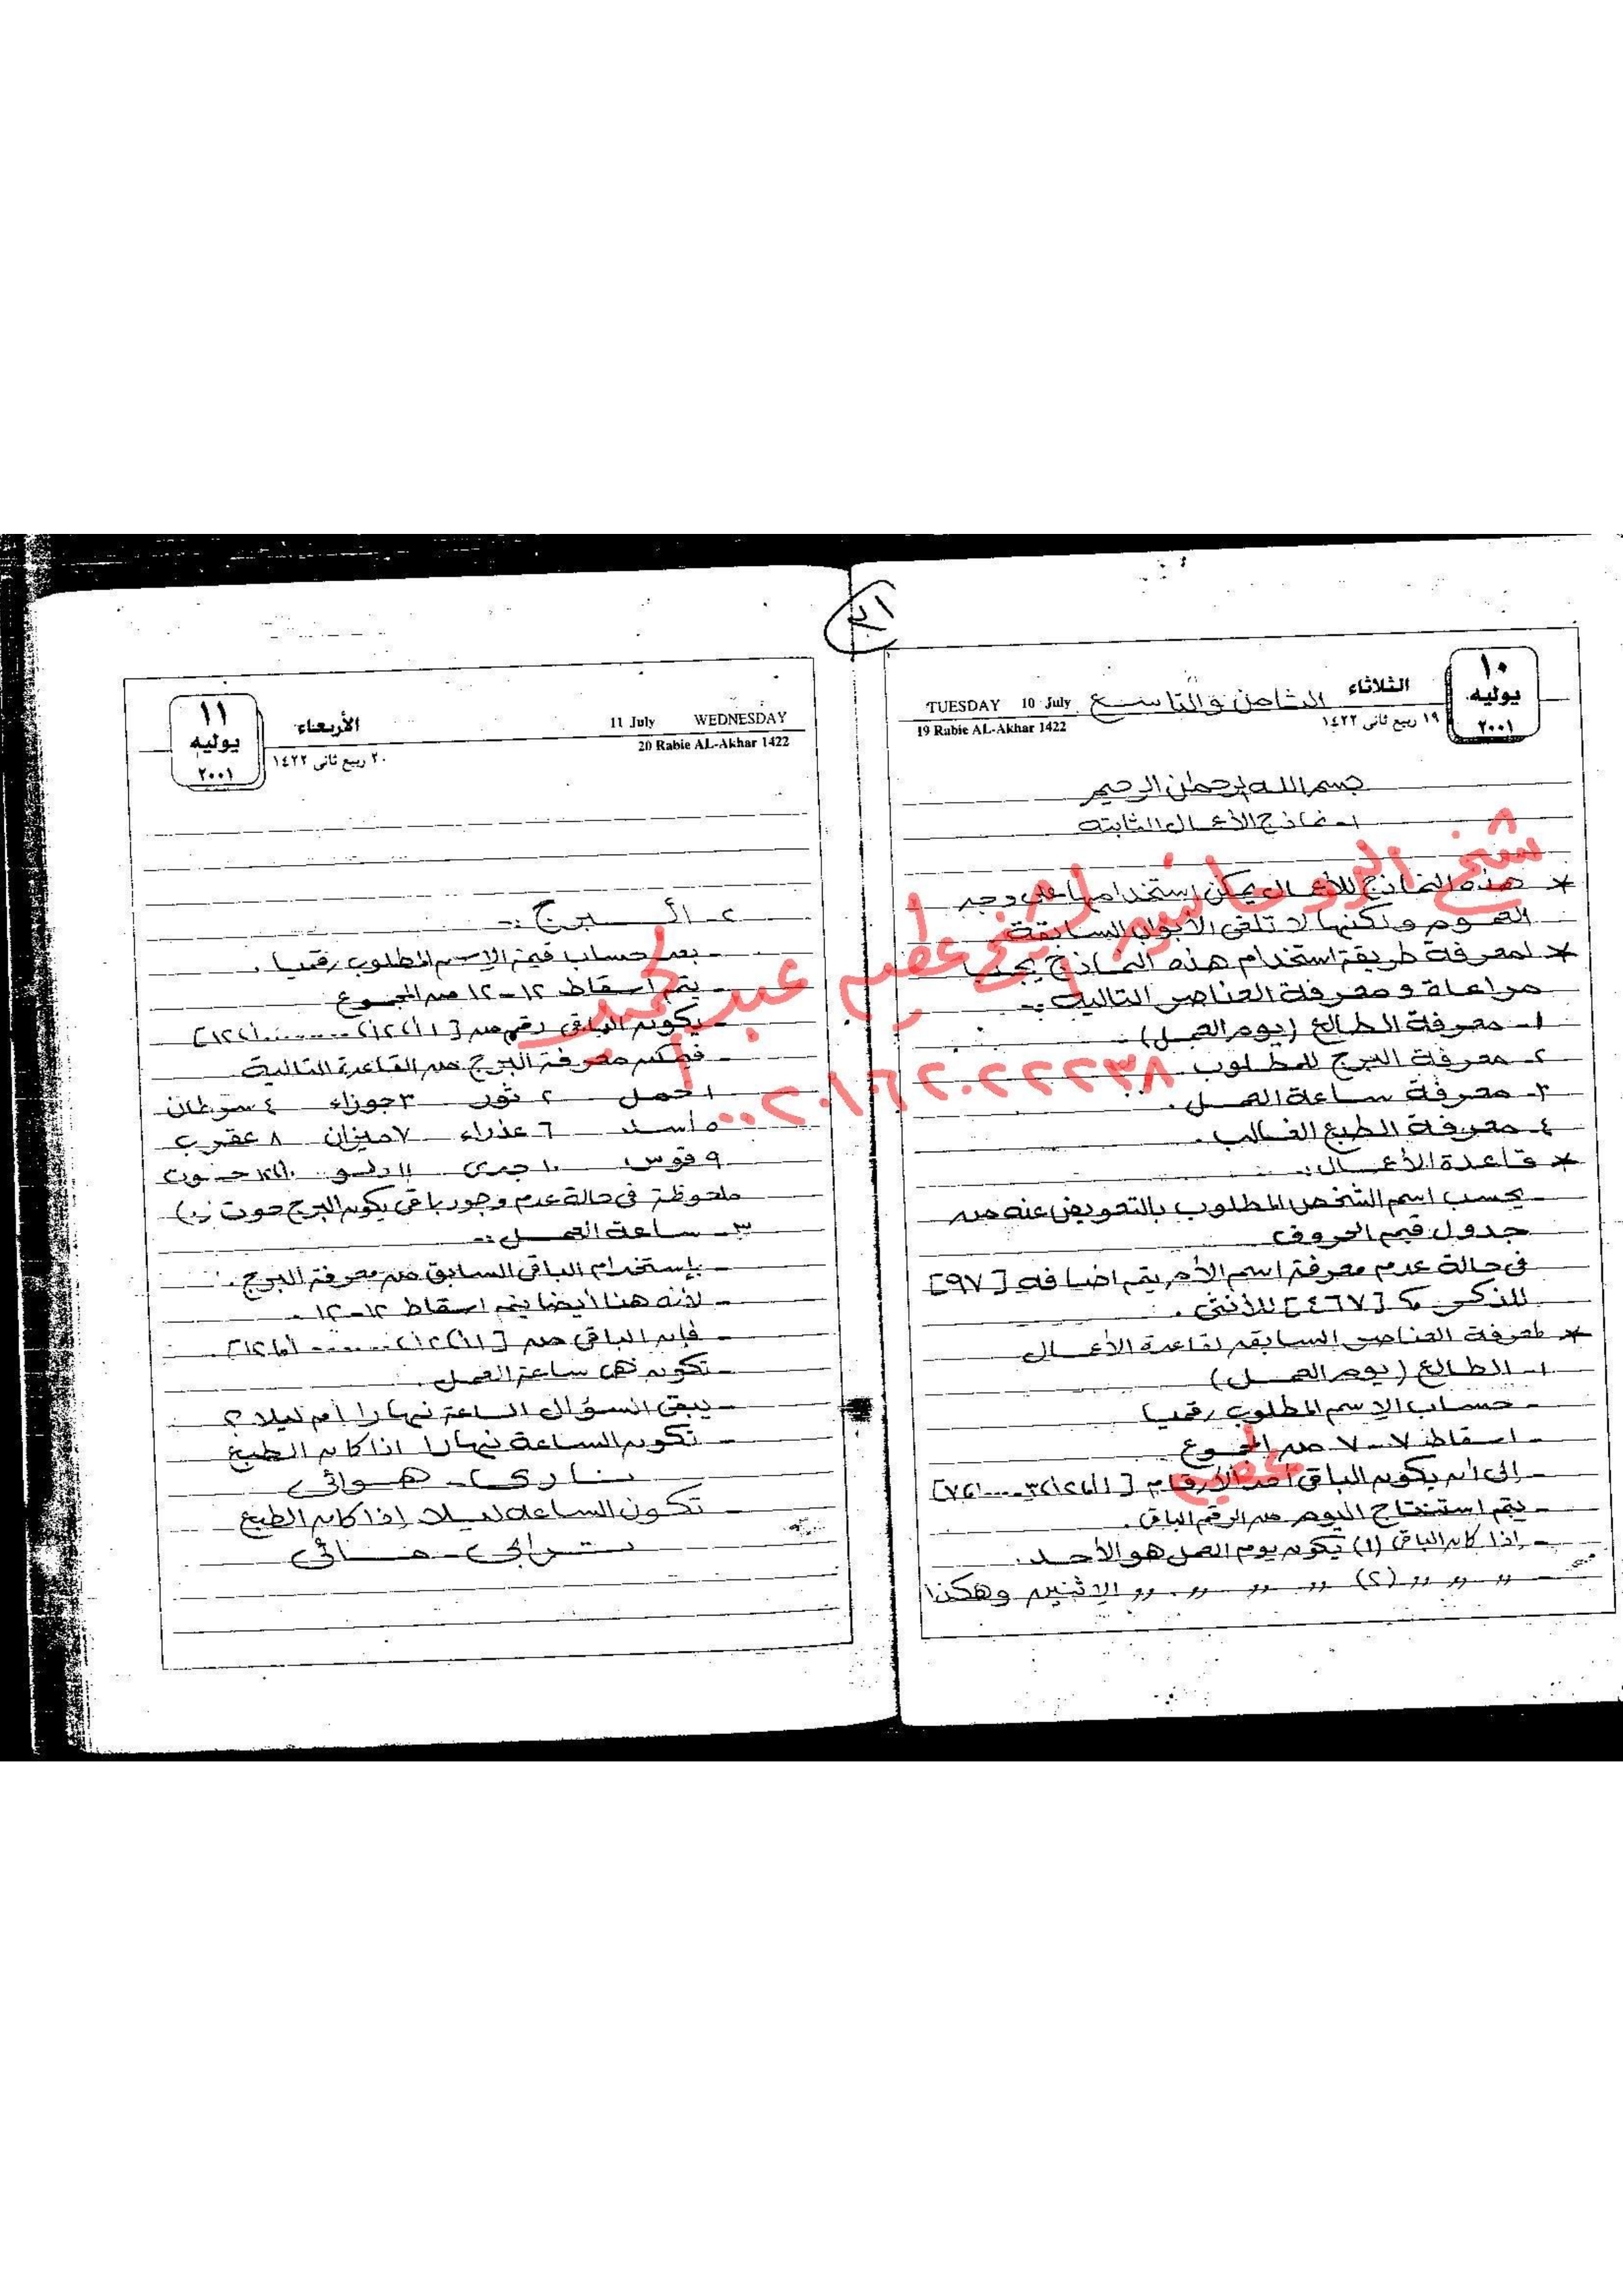 ٢١
١٠
يوليه
٢٠٠١
الثلاثاء
١٩ ربيع ثانى ١٤٢٢
الثامن والتاسع
TUESDAY 10 July
19 Rabie AL-Akhar 1422
بسم الله الرحمان الرحيم
١- نماذج الأعمال الثابته
* هذه النماذج للأعمال يمكن إستخدامها على وجه
العموم ولكنها لا تلغى الأبواب السابقة
* لمعرفة طريقة استخدام هذه النماذج يجب
مراعاة ومعرفة العناصر التاليه :-
١- معرفة الطالع (يوم العمل).
٢- معرفة البرج للمطلوب.
٣- معرفة ساعة العمل.
٤- معرفة الطبع الغالب.
* قاعدة الأعمال :-
- يحسب اسم الشخص المطلوب بالتعويض عنه من
جدول قيم الحروف
فى حالة عدم معرفة اسم الأم يتم اضافه [٩٧]
للذكر، [٤٦٧] للأنثى.
* لمعرفة العناصر السابقه لقاعدة الأعمال
١- الطالع (يوم العمل)
- حساب الإسم المطلوب رقميا
- اسقاط ٧-٧ من المجموع
- إلى أن يكون الباقى أحد الأرقام [١أ،٢أ،٣....أ،٧]
- يتم استنتاج اليوم من الرقم الباقى.
- إذا كان الباقى (١) يكون يوم العمل هو الأحد.
- " " " (٢) " " " " الإثنين وهكذا
شيخ الروحانيين الشيخ عطيه عبد الحميد
٠٠٢٠١٠٦٢٠٢٢٢٢٣٨
عطيه
١١
يوليه
٢٠٠١
الأربعاء
٢٠ ربيع ثانى ١٤٢٢
11 July WEDNESDAY
20 Rabie AL-Akhar 1422
٢- البرج :-
- بعد حساب قيمة الإسم المطلوب رقميا.
- يتم اسقاط ١٢-١٢ من المجموع
- يكون الباقى رقم من [١أ،٢أ،.......أ،١٢]
- فيمكن معرفة البرج من القاعدة التالية
١ حمل ٢ ثور ٣ جوزاء ٤ سرطان
٥ أسد ٦ عذراء ٧ ميزان ٨ عقرب
٩ قوس ١٠ جدى ١١ دلو ١٢ حوت
ملحوظة فى حالة عدم وجود باقى يكون البرج حوت
٣- ساعة العمل :-
- بإستخدام الباقى السابق من معرفة البرج.
- لأنه هنا أيضا يتم اسقاط ١٢-١٢.
- فإن الباقى من [١أ،٢أ،......أ،١٢].
- تكون هى ساعة العمل.
- يبقى السؤال الساعة نهارا أم ليلا؟
- تكون الساعة نهارا اذا كان الطبع
نارى - هوائى
- تكون الساعه ليلا إذا كان الطبع
ترابى - مائى